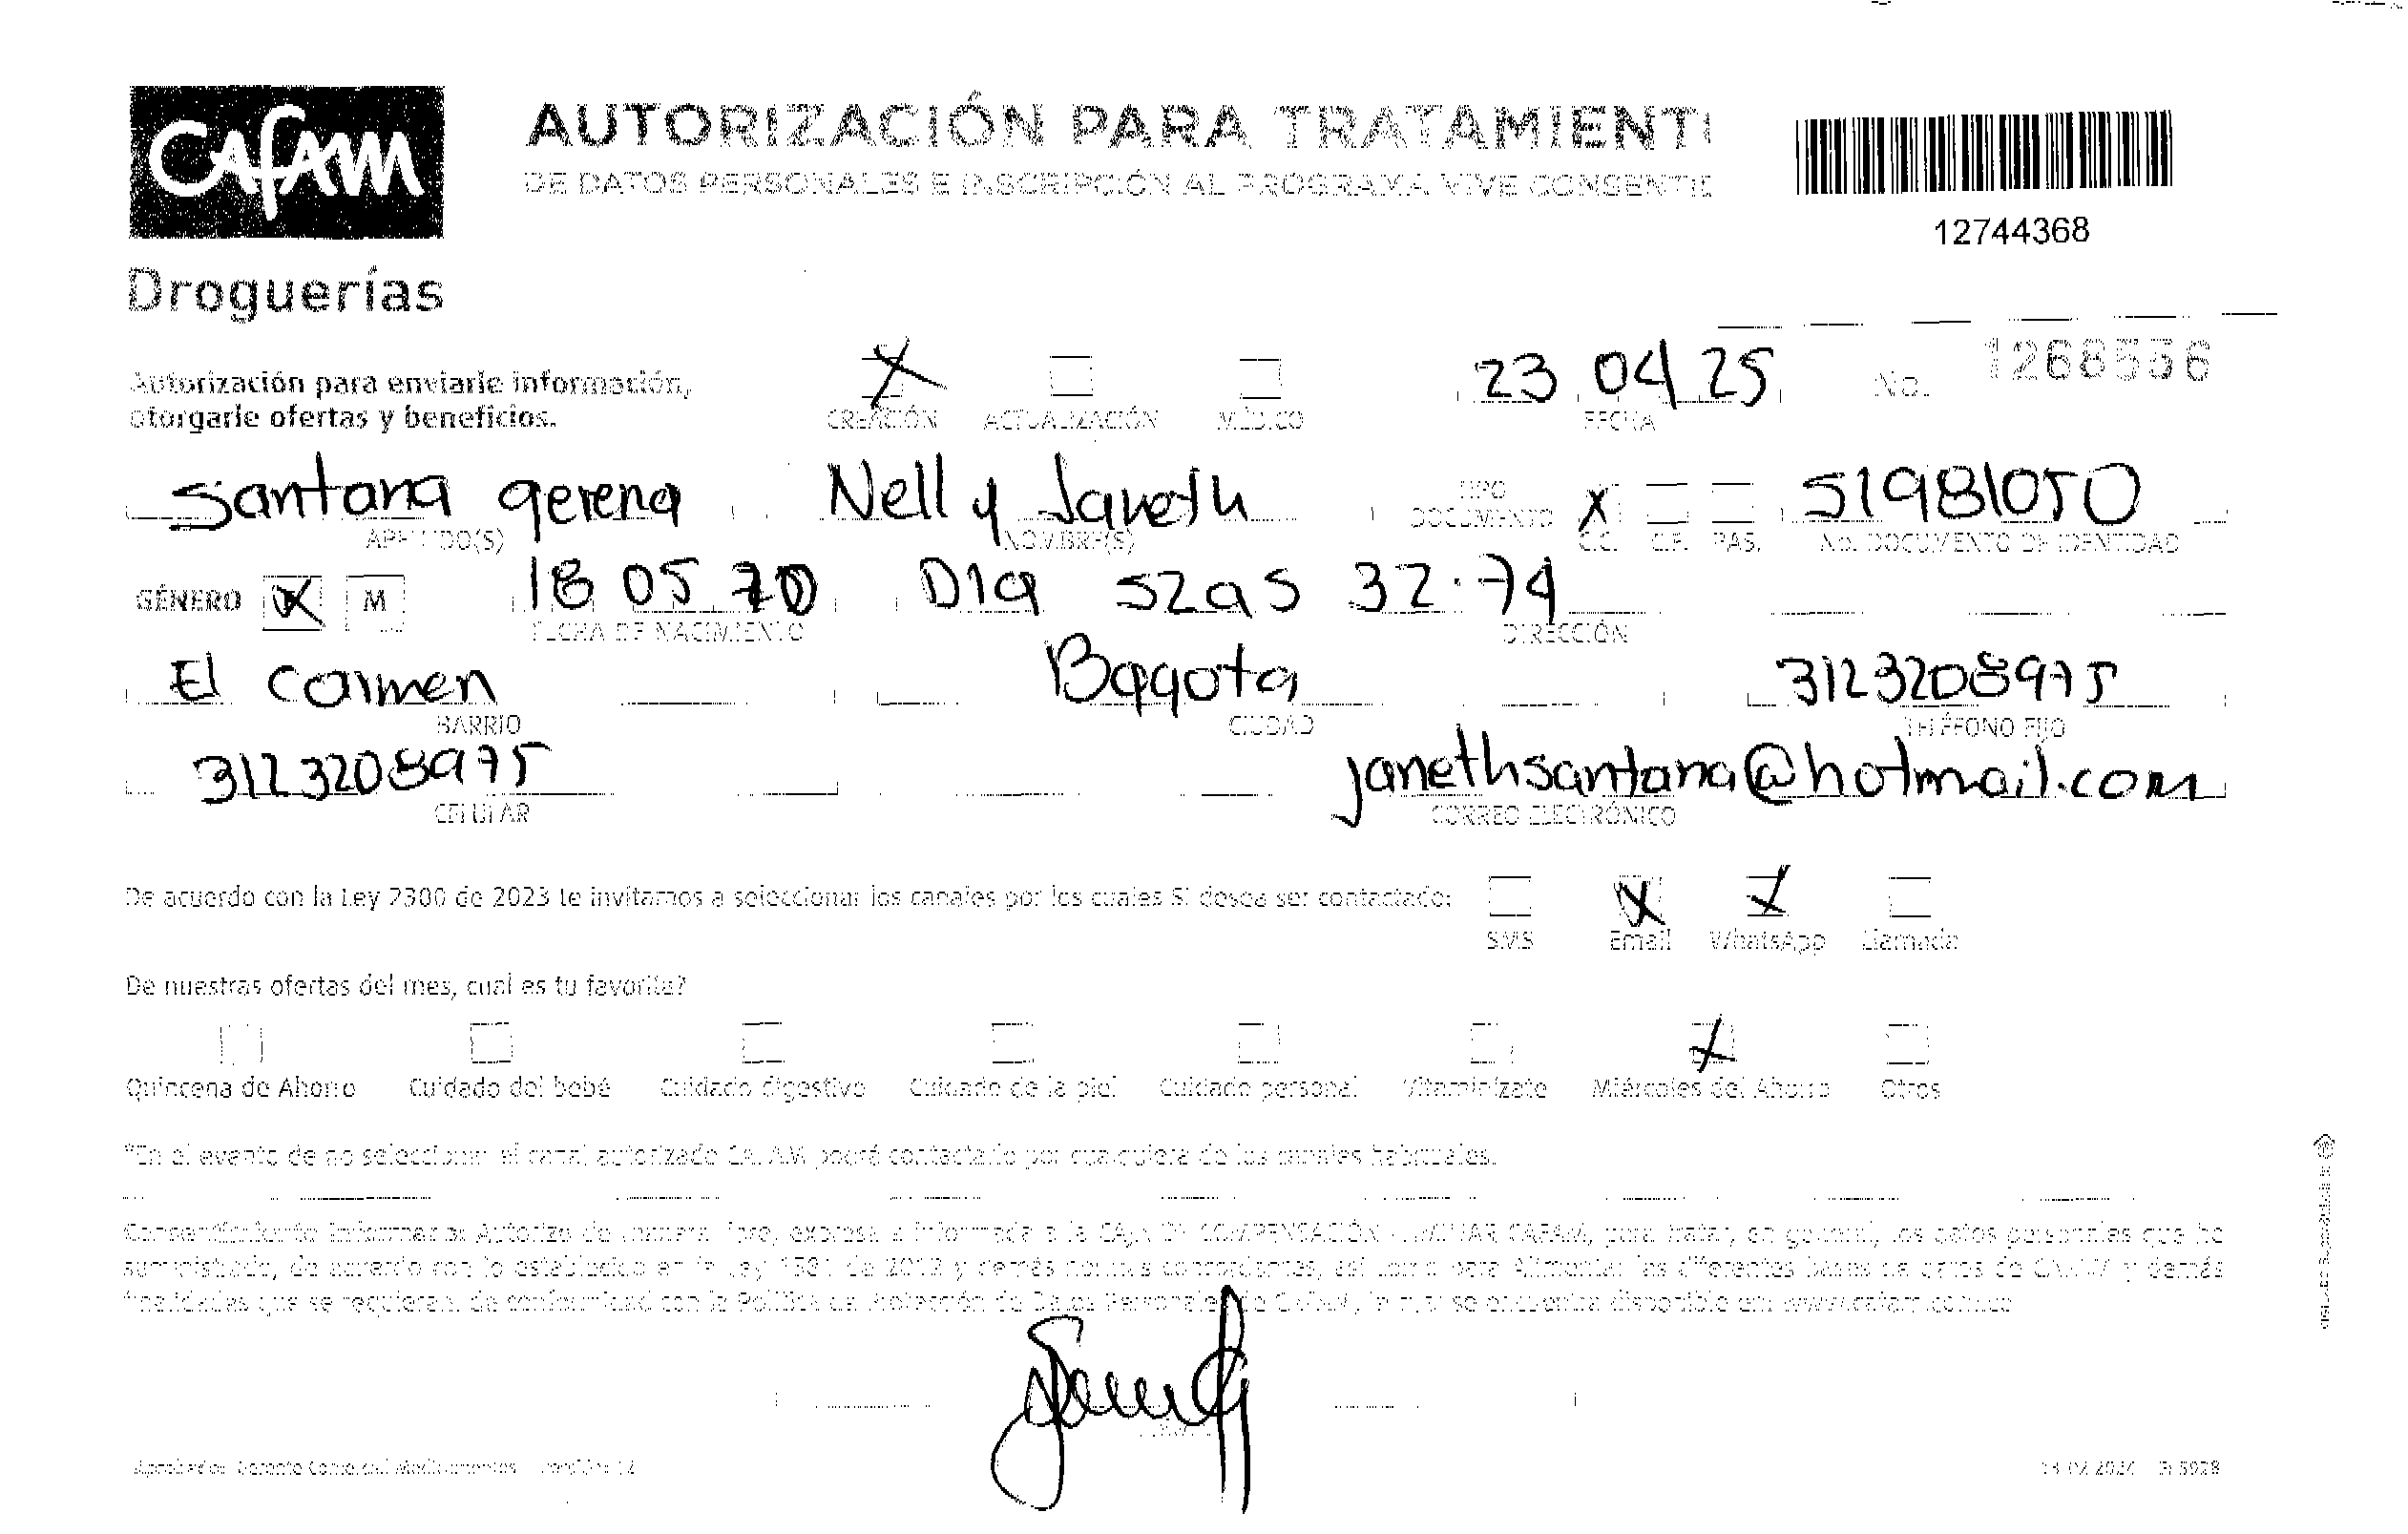 CAFAM
Droguerías
AUTORIZACIÓN PARA TRATAMIENT
DE DATOS PERSONALES E INSCRIPCIÓN AL PROGRAMA VIVE CONSENTID
12744368
Autorización para enviarle información,
otorgarle ofertas y beneficios.
CREACIÓN ACTUALIZACIÓN MÉDICO
23 04 25
FECHA
No. 1268556
Santana gerena Nelly Janeth
APELLIDO(S) NOMBRE(S)
TIPO DOCUMENTO X C.C. C.E. PAS.
51981050
No. DOCUMENTO DE IDENTIDAD
GÉNERO X M
18 05 70 D19 52a5 32.74
FECHA DE NACIMIENTO DIRECCIÓN
El Carmen Bogota 3123208975
BARRIO CIUDAD TELÉFONO FIJO
3123208975 janethsantana@hotmail.com
CELULAR CORREO ELECTRÓNICO
De acuerdo con la Ley 2300 de 2023 te invitamos a seleccionar los canales por los cuales SI desea ser contactado:
SMS Email WhatsApp Llamada
De nuestras ofertas del mes, cual es tu favorita?
Quincena de Ahorro Cuidado del bebé Cuidado digestivo Cuidado de la piel Cuidado personal Vitaminízate Miércoles del Ahorro Otros
*En el evento de no seleccionar el canal autorizado CAFAM podrá contactarlo por cualquiera de los canales habituales.
Consentimiento Informado: Autorizo de manera libre, expresa e informada a la CAJA DE COMPENSACIÓN FAMILIAR CAFAM, para tratar, en general, los datos personales que he
suministrado, de acuerdo con lo establecido en la Ley 1581 de 2012 y demás normas concordantes, así como para alimentar las diferentes bases de datos de CAFAM y demás
finalidades que se requieran, de conformidad con la Política de Protección de Datos Personales de CAFAM, la cual se encuentra disponible en: www.cafam.com.co
FIRMA
Aprobado: Gerente Comercial Medicamentos Versión: 12